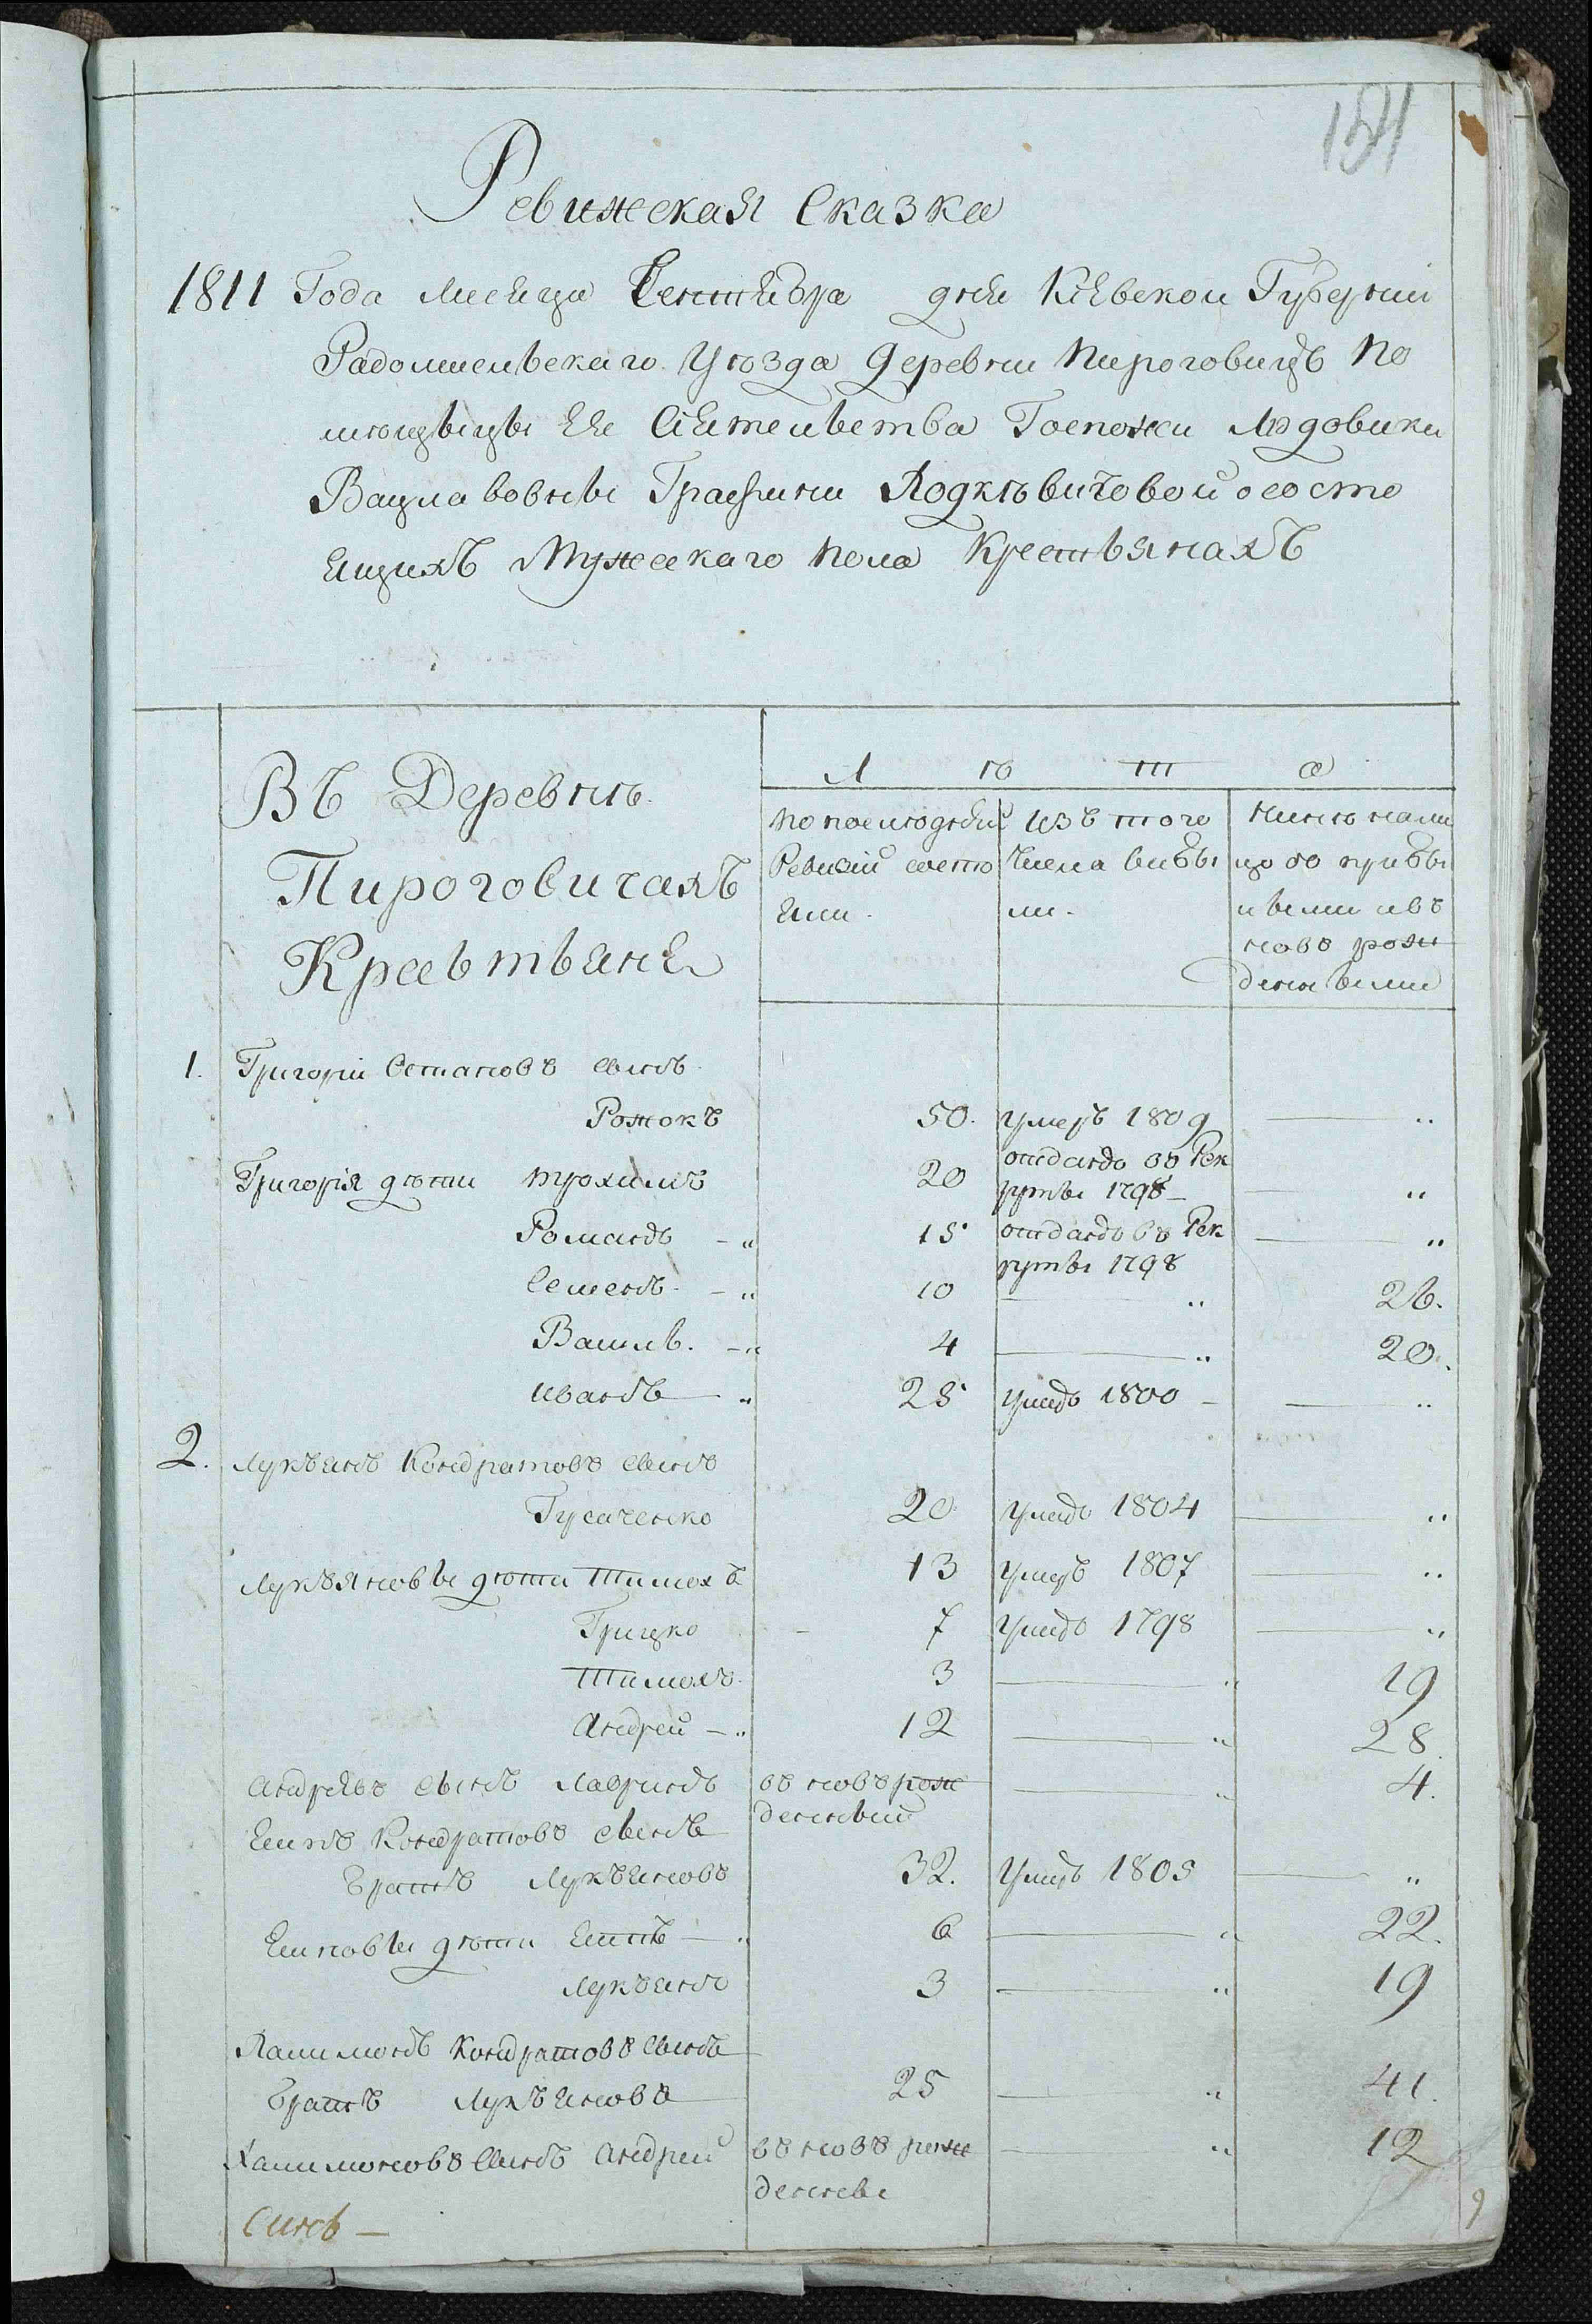 Ревижская Сказка
1811 Года Месеца Сентебра дня Кіевской Губерніи
Радомисльскаго Уѣзда Деревни Пироговичъ По
мѣщыцы Ее Сіятельства Госпожи Людовики
Вацлавовны Графини Ходкѣвичовой о состо
ящихъ Мужескаго пола Крестьянахъ
Въ Деревнѣ
Пироговичахъ
Крестьяне
Л ѣ т а
По послѣдней Ревизіи состо яли.
Изъ того Числа выбы ли.
Нинѣ нали цо со прибы
1. Григорій Остаповъ сынъ
Рожокъ 50. умеръ 1809 — „
Григорія дѣти Трохимъ 20 отданъ въ Рек
руты 1798 — „
Романъ — „ 15 отданъ въ Рек
руты 1798 — „
Семенъ. — „ 10 — „ 26.
Василь. — „ 4 — „ 20.
Иванъ — „ 25 умеръ 1800 — „
2. Лукъянъ Кондратовъ сынъ
Гусаченко 20 умеръ 1804 — „
Лукъяновы дѣти Тимохъ 13 умеръ 1807 — „
Грицко 7 умеръ 1798 — „
Тимохъ 3 — „ 19
Андрей — „ 12 — „ 28.
Андреевъ сынъ Лавринъ въ новъ рож
денный — „ 4.
Кондратовъ сынъ
Братъ Лукъяновъ 32. умеръ 1805 — „
дѣти — „ 6 — „ 22.
Лукъянъ 3 — „ 19
Кондратовъ сынъ
Братъ Лукъяновъ 25 — „ 41.
сынъ Андрей въ новъ рож — „ 12
денны